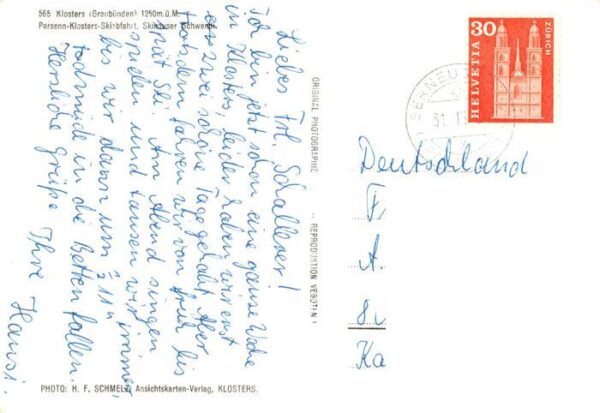 565 Klosters (Graubünden) 1250m.ü.M.
Parsenn-Klosters-Skiabfahrt, Skihäuser Schwendi
Liebes Frl. Schallener!
Ich bin jetzt schon eine ganze Woche
in Klosters, leider haben wir erst
zwei schöne Tage gehabt. Aber
trotzdem fahren wir von früh bis
spät Ski. Am Abend singen
spielen und tanzen wir immer
bis wir dann um 11h
todmüde in die Betten fallen.
Herzliche Grüße Ihre Hansi.
ORIGINAL PHOTOGRAPHIE -- REPRODUKTION VERBOTEN!
PHOTO: H. F. SCHMELZ, Ansichtskarten-Verlag, KLOSTERS.
30
HELVETIA
ZÜRICH
SERNEU
31. 1
Deutschland
F
A.
8
Ka